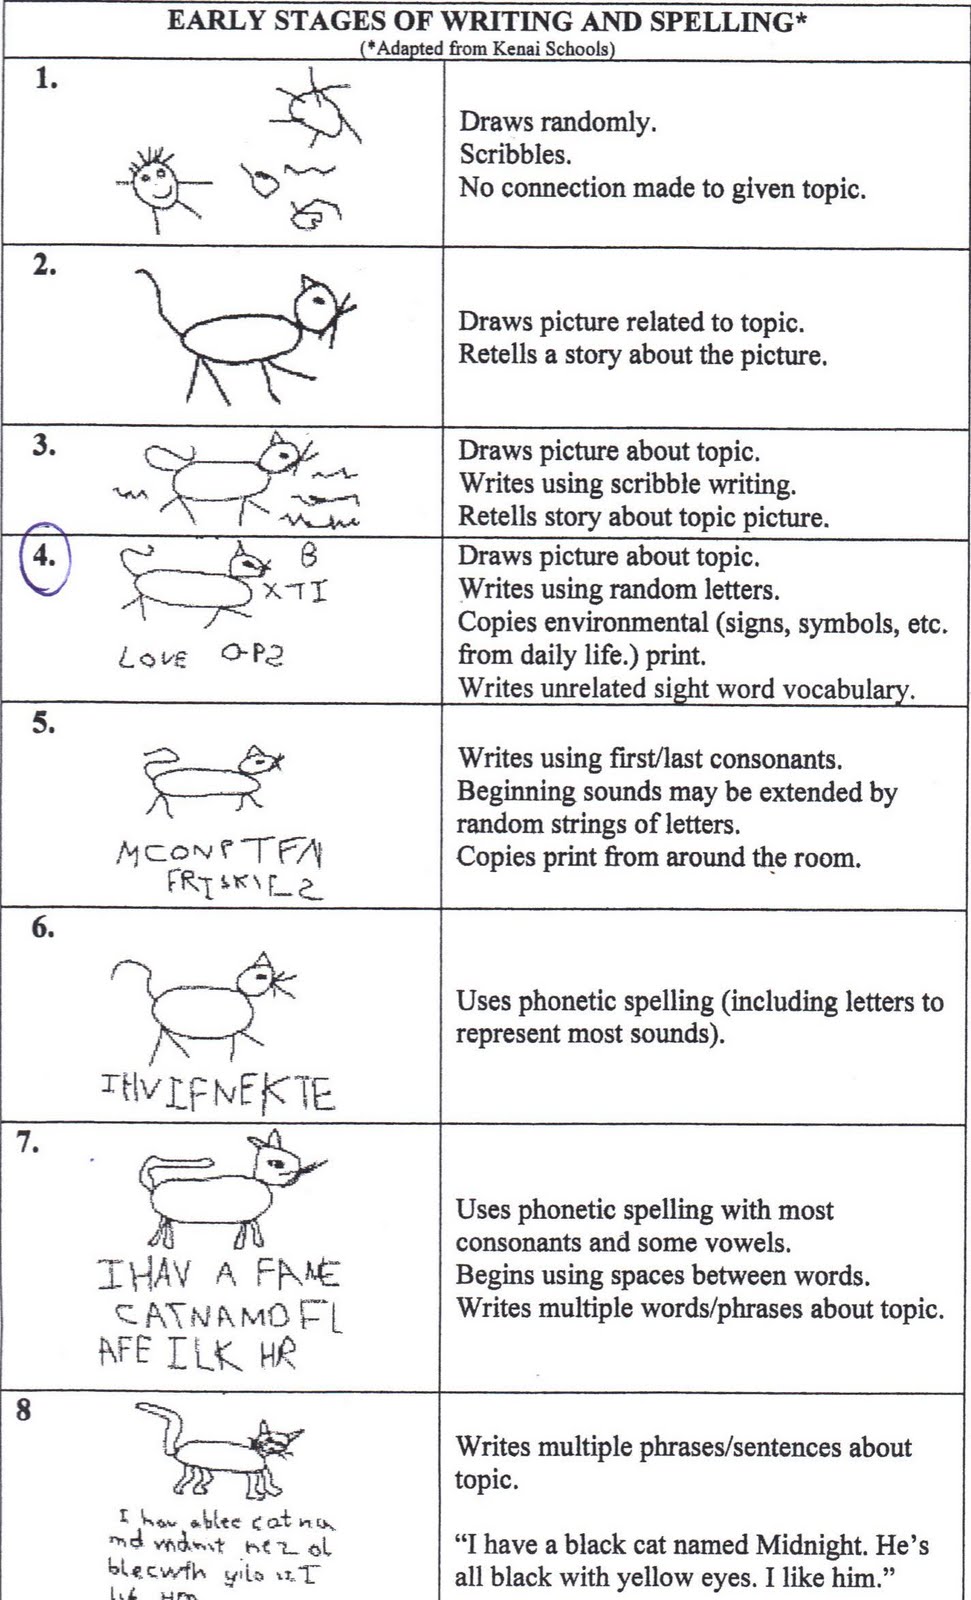 EARLY STAGES OF WRITING AND SPELLING*
(*Adapted from Kenai Schools)
1.
Draws randomly.
Scribbles.
No connection made to given topic.
2.
Draws picture related to topic.
Retells a story about the picture.
3.
Draws picture about topic.
Writes using scribble writing.
Retells story about topic picture.
4.
B
XTI
LOVE OP2
Draws picture about topic.
Writes using random letters.
Copies environmental (signs, symbols, etc.
from daily life.) print.
Writes unrelated sight word vocabulary.
5.
MCONPTFN
Writes using first/last consonants.
Beginning sounds may be extended by
random strings of letters.
Copies print from around the room.
6.
IHVIFNEKTE
Uses phonetic spelling (including letters to
represent most sounds).
7.
I HAV A FANE
CATNAMDFL
AFE ILK HR
Uses phonetic spelling with most
consonants and some vowels.
Begins using spaces between words.
Writes multiple words/phrases about topic.
8
I hav ablec cat na
md mdmit hez ol
blecwth yilo iz I
Writes multiple phrases/sentences about
topic.
“I have a black cat named Midnight. He’s
all black with yellow eyes. I like him.”